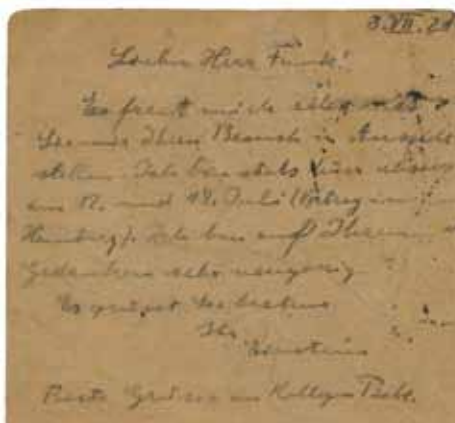 3.VII.21
Lieber Herr Funk!
Es freut mich sehr, dass
Sie mir Ihren Besuch in Aussicht
stellen. Ich bin stets hier ausser
am 17. und 18. Juli (Vortrag in
Hamburg). Ich bin auf Ihren
Gedanken sehr neugierig.
Es grüsst Sie bestens
Ihr
Einstein
Beste Grüsse an Kollegen